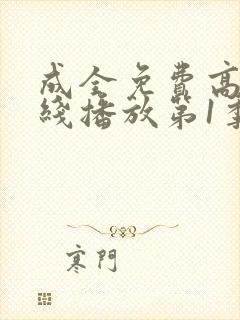 成全免费高
綫播放第1季
寒門